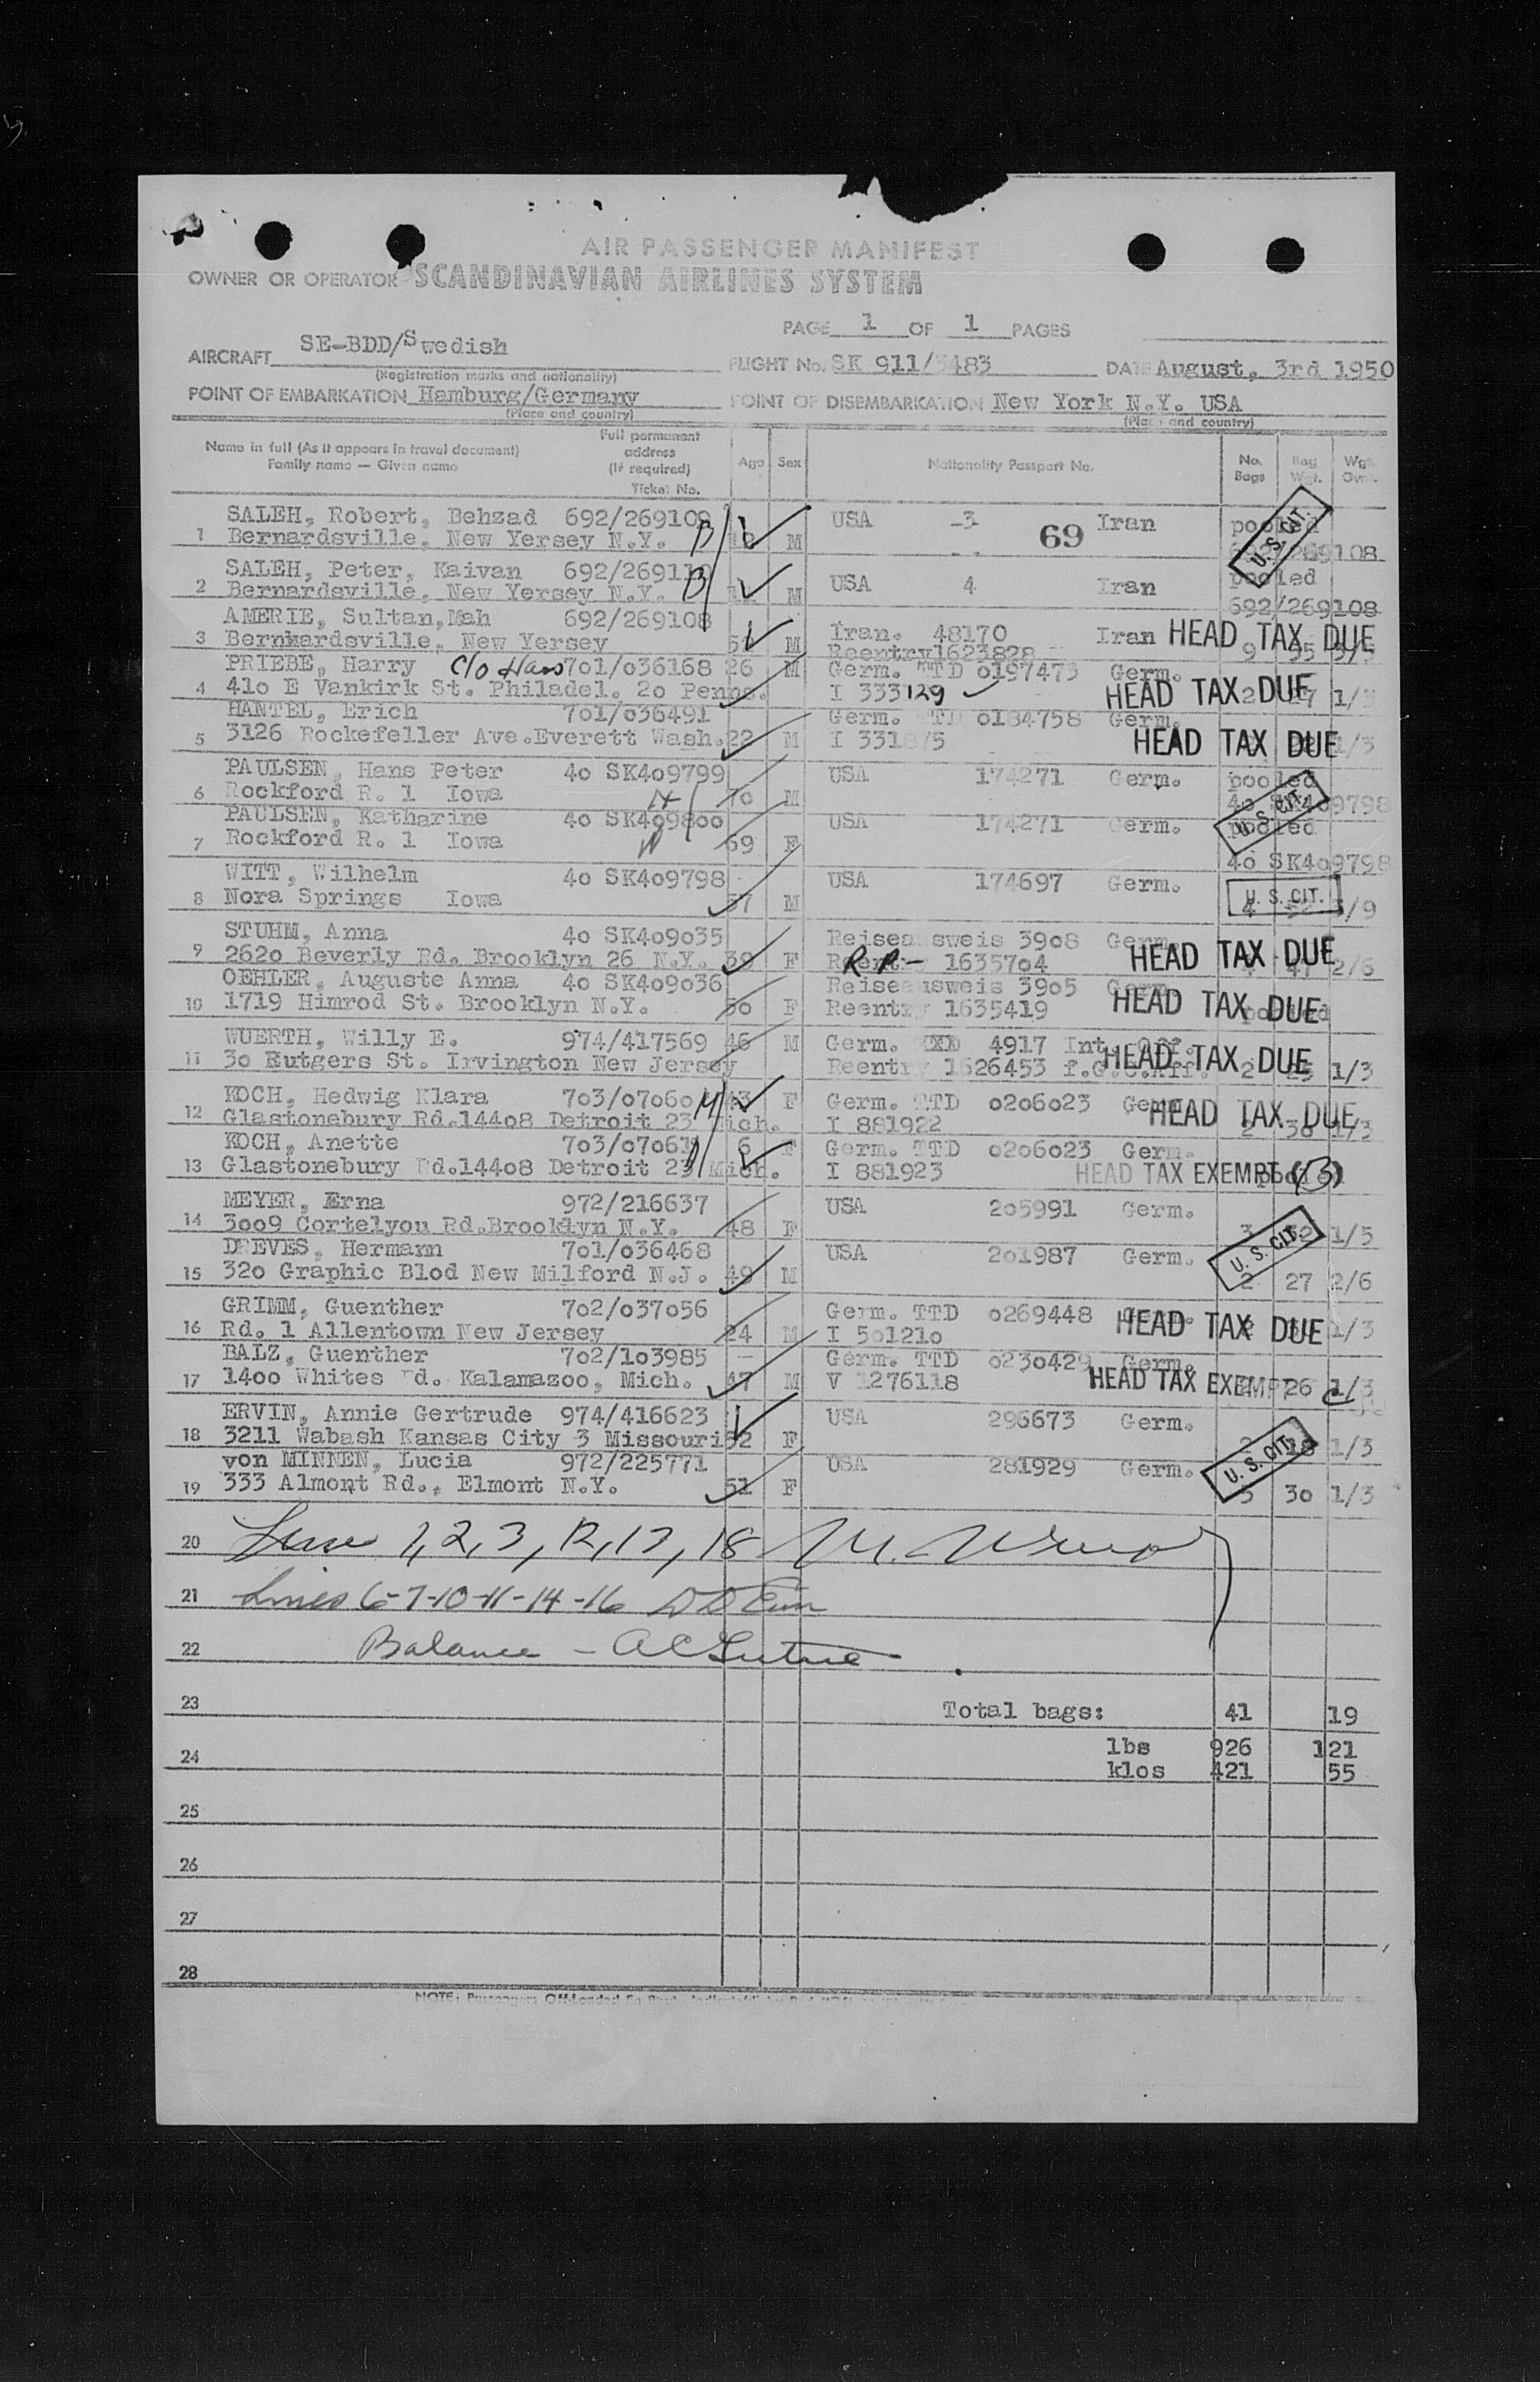 AIR PASSENGER MANIFEST
OWNER OR OPERATOR SCANDINAVIAN AIRLINES SYSTEM
PAGE 1 OF 1 PAGES
AIRCRAFT SE-BDD/Swedish FLIGHT No. SK 911/3483 DATE August, 3rd 1950
(Registration marks and nationality)
POINT OF EMBARKATION Hamburg/Germany POINT OF DISEMBARKATION New York N.Y. USA
(Place and country) (Place and country)
Name in full (As it appears in travel document) Family name — Given name Full permanent address (If required) Ticket No. Age Sex Nationality Passport No. No. Bags Bag Wgt. Wgt.
SALEH, Robert, Behzad 692/269109 USA -3 69 Iran pooled U.S. CIT.
1 Bernardsville, New Yersey N.Y. B M 692/269108
SALEH, Peter, Kaivan 692/269110 USA 4 Iran pooled
2 Bernardsville, New Yersey N.Y. B M 692/269108
AMERIE, Sultan, Mah 692/269108 Iran. 48170 Iran HEAD TAX DUE
3 Bernkardsville, New Yersey M Reentry1623828 9
PRIEBE, Harry C/o Hans 701/036168 26 M Germ. TTD 0197473 Germ.
4 410 E Vankirk St. Philadel. 20 Penns. I 333129 HEAD TAX DUE 2 1/3
HANTEL, Erich 701/036491 Germ. TTD 0184758 Germ.
5 3126 Rockefeller Ave.Everett Wash. 22 M I 331875 HEAD TAX DUE 1/3
PAULSEN, Hans Peter 40 SK409799 USA 174271 Germ. pooled
6 Rockford R. 1 Iowa 70 M 40 SK409798 U. S. CIT.
PAULSEN, Katharine 40 SK409800 USA 174271 Germ. pooled
7 Rockford R. 1 Iowa 69 F 40 SK409798
WITT, Wilhelm 40 SK409798 USA 174697 Germ. U. S. CIT.
8 Nora Springs Iowa M 4
STUHM, Anna 40 SK409035 Reiseausweis 3908 Germ.
9 2620 Beverly Rd. Brooklyn 26 N.Y. 39 F Reentry 1635704 HEAD TAX DUE 2/6
OEHLER, Auguste Anna 40 SK409036 Reiseausweis 3905 Germ.
10 1719 Himrod St. Brooklyn N.Y. 50 F Reentry 1635419 HEAD TAX DUE pooled
WUERTH, Willy E. 974/417569 46 M Germ. 4917 Int. Off.
11 30 Rutgers St. Irvington New Jersey Reentry 1626453 HEAD TAX DUE 2 1/3
KOCH, Hedwig Klara 703/07060 43 F Germ. TTD 0206023 Germ. HEAD TAX DUE
12 Glastonebury Rd.14408 Detroit 23 Mich. I 881922 2 1/3
KOCH, Anette 703/07061 6 F Germ. TTD 0206023 Germ.
13 Glastonebury Rd.14408 Detroit 23 Mich. I 881923 HEAD TAX EXEMPT (3)
MEYER, Erna 972/216637 USA 205991 Germ.
14 3009 Cortelyou Rd.Brooklyn N.Y. 48 F 3 1/5
DREVES, Hermann 701/036468 USA 201987 Germ. U. S. CIT.
15 320 Graphic Blod New Milford N.J. 49 M 2 27 2/6
GRIMM, Guenther 702/037056 Germ. TTD 0269448 HEAD TAX DUE
16 Rd. 1 Allentown New Jersey 24 M I 501210 1/3
BALZ, Guenther 702/103985 Germ. TTD 0230429 Germ.
17 1400 Whites Rd. Kalamazoo, Mich. 47 M V 1276118 HEAD TAX EXEMPT 26 1/3
ERVIN, Annie Gertrude 974/416623 USA 296673 Germ.
18 3211 Wabash Kansas City 3 Missouri F 2 18 1/3
von MINNEN, Lucia 972/225771 USA 281929 Germ. U. S. CIT.
19 333 Almont Rd., Elmont N.Y. 51 F 30 1/3
20 1, 2, 3, 12, 13, 18
21 Lines 6-7-10-11-14-16
22 Balance -
23 Total bags: 41 19
24 lbs 926 121
klos 421 55
25
26
27
28